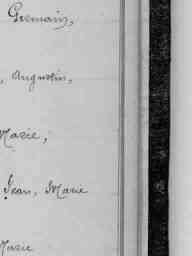 Germain,
, Augustin,
Marie,
Jean, Marie
Marie